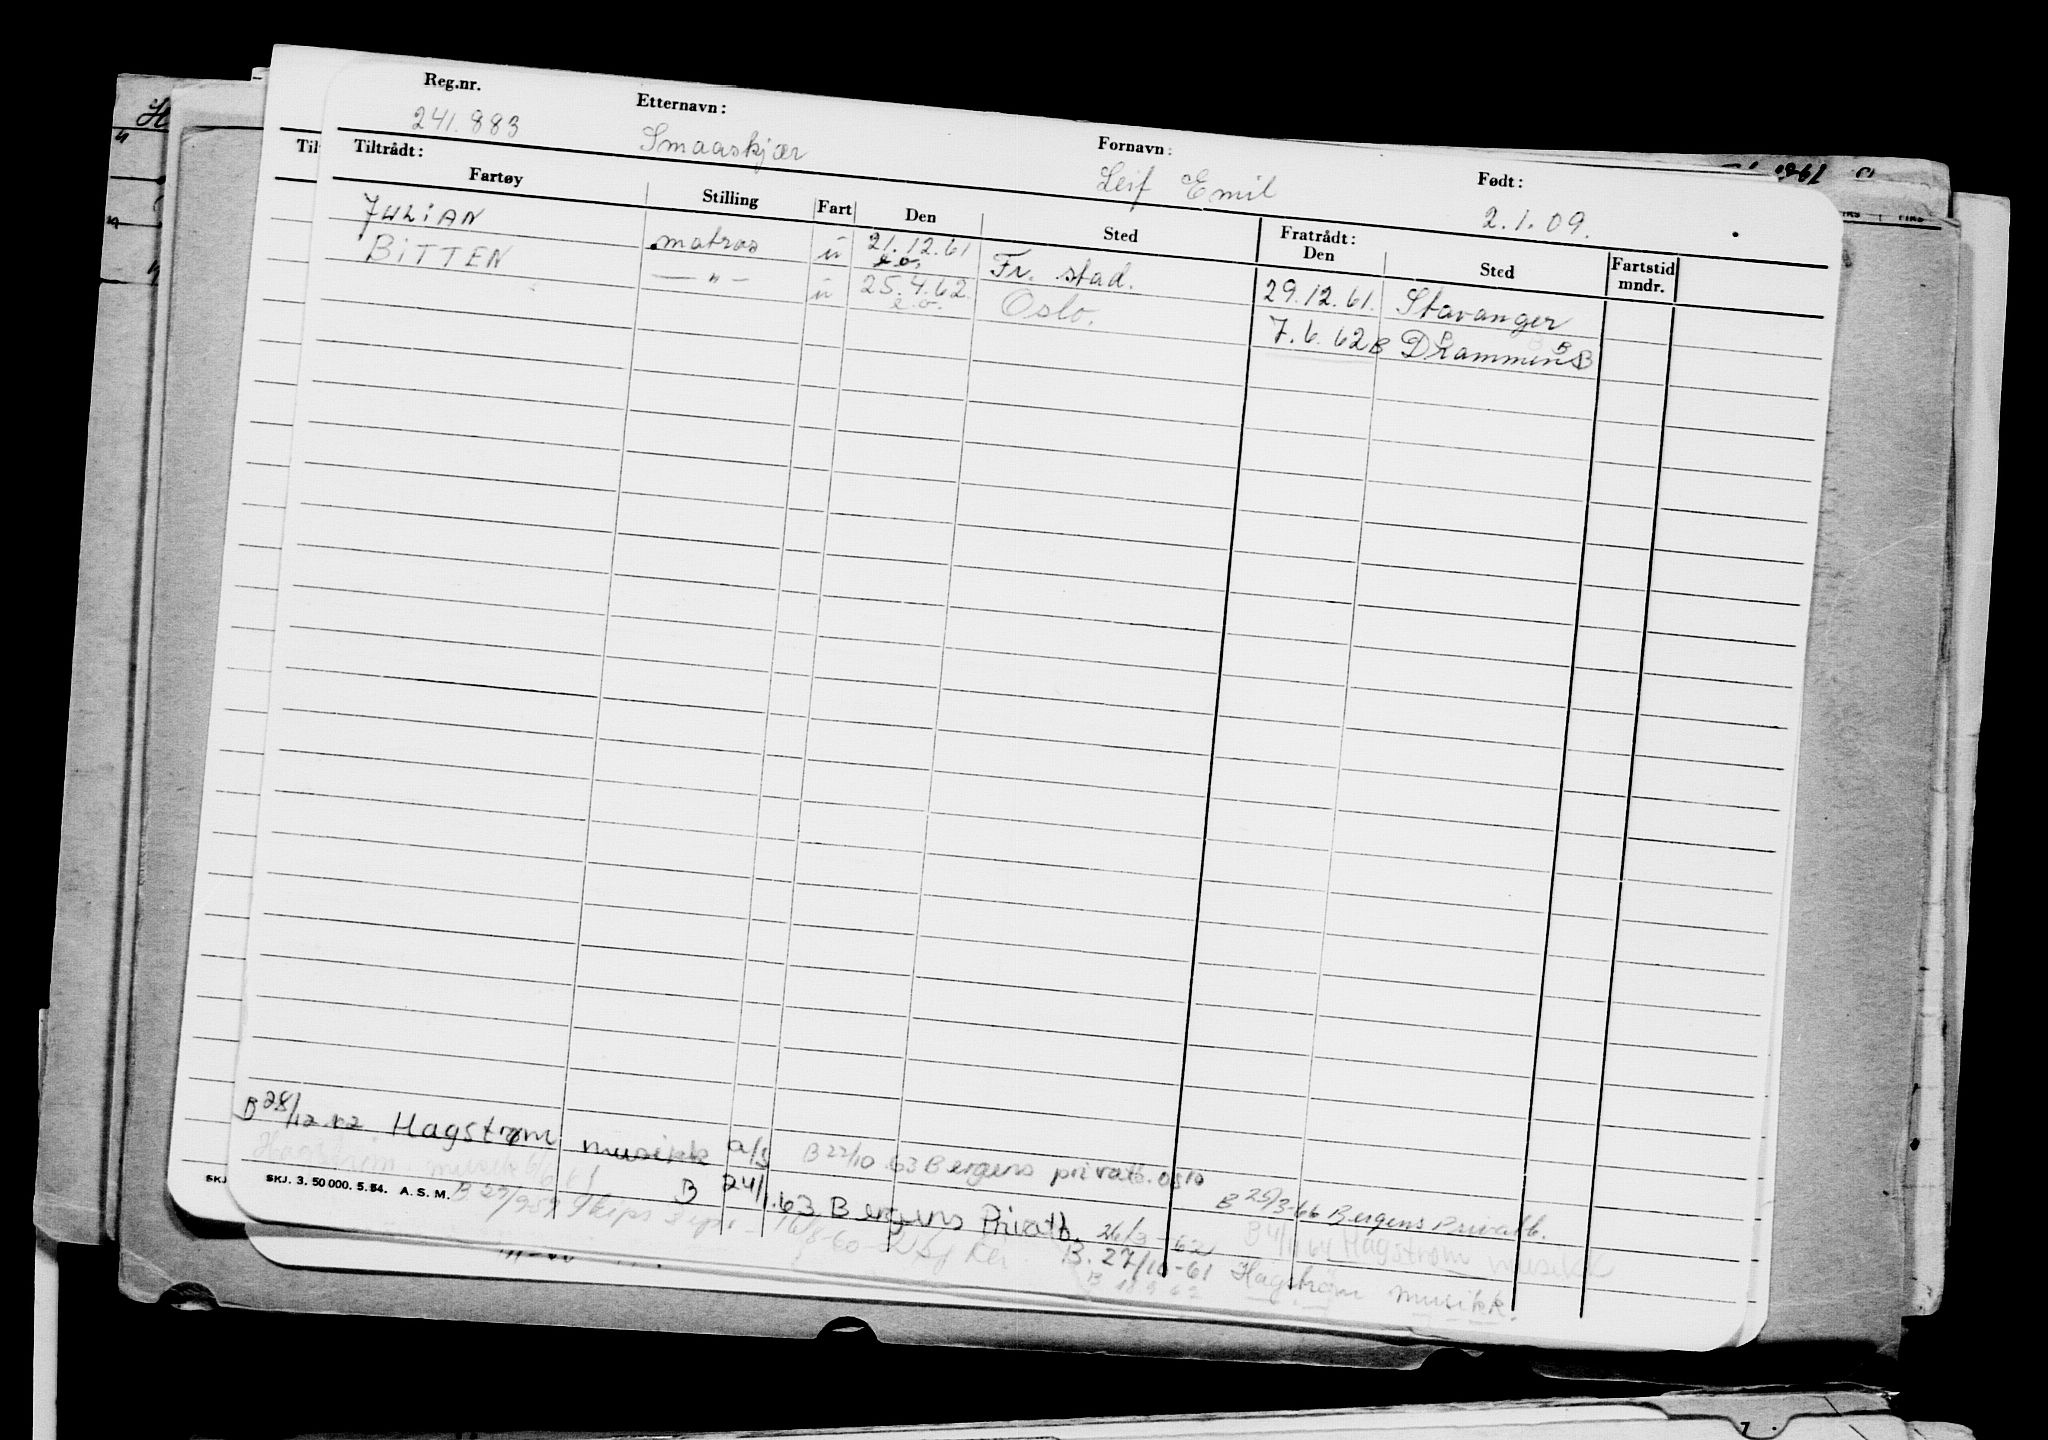 Reg.nr. Etternavn: Fornavn: Født:
241.883 Smaaskjær Leif Emil 2.1.09.
Tiltrådt: Fratrådt:
Fartøy Stilling Fart Den Sted Den Sted Fartstid mndr.
JULIAN matros u 21.12.61 Fr. stad. 29.12.61. Stavanger
BITTEN — " — u 25.4.62. Oslo. 7.6.62 Drammen
B 28/12.62 Hagstrøm musikk a/s B 22/10.63 Bergens privatb. Oslo
B 25/3-66 Bergens Privatb.
Hagstrøm musikk
SKJ. 3. 50 000. 5. 54. A. S. M.
B 24/1.63 Bergens Privatb. 26/3-62
B 4/11 64 Hagstrøm musikk
B. 27/10-61 Hagstrøm musikk.
B 18 9 62